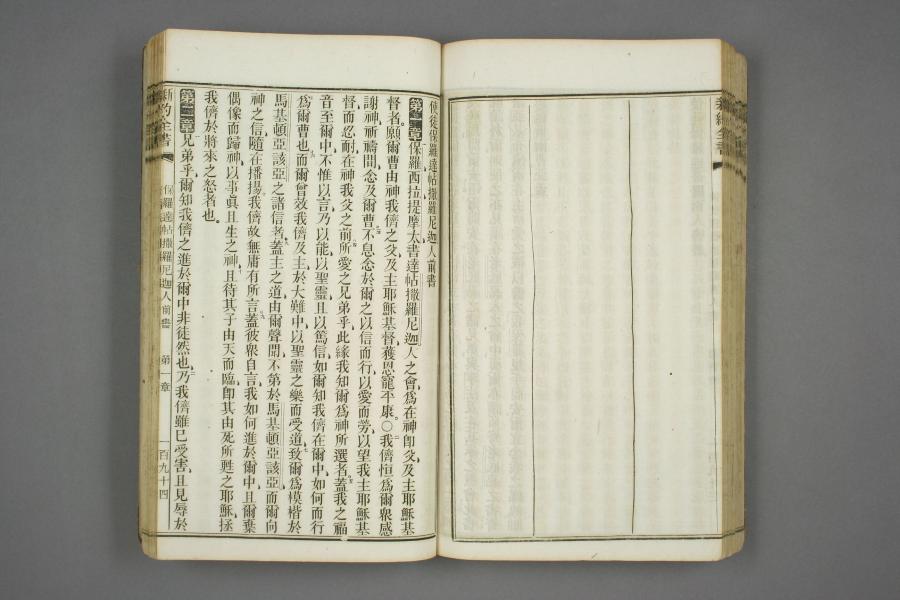 新約全書
使徒保羅達帖撒羅尼迦人前書
第一章保羅西拉提摩太書達帖撒羅尼迦人之會爲在神卽父及主耶穌基
督者願爾曹由神我儕之父及主耶穌基督獲恩寵平康〇我儕恒爲爾衆感
謝神祈禱間念及爾曹不息念於爾之以信而行以愛而勞以望我主耶穌基
督而忍耐在神我父之前所愛之兄弟乎此緣我知爾爲神所選者蓋我之福
音至爾中不惟以言乃以能以聖靈且以篤信如爾知我儕在爾中如何而行
爲爾曹也而爾曾效我儕及主於大難中以聖靈之樂而受道致爾爲模楷於
馬基頓亞該亞之諸信者蓋主之道由爾聲聞不第於馬基頓亞該亞而爾向
神之信隨在播揚我儕故無庸有所言蓋彼衆自言我如何進於爾中且爾棄
偶像而歸神以事眞且生之神且待其子由天而臨卽其由死所甦之耶穌拯
我儕於將來之怒者也
第二章兄弟乎爾知我儕之進於爾中非徒然也乃我儕雖已受害且見辱於
新約全書 保羅達帖撒羅尼迦人前書 第一章 一百九十四